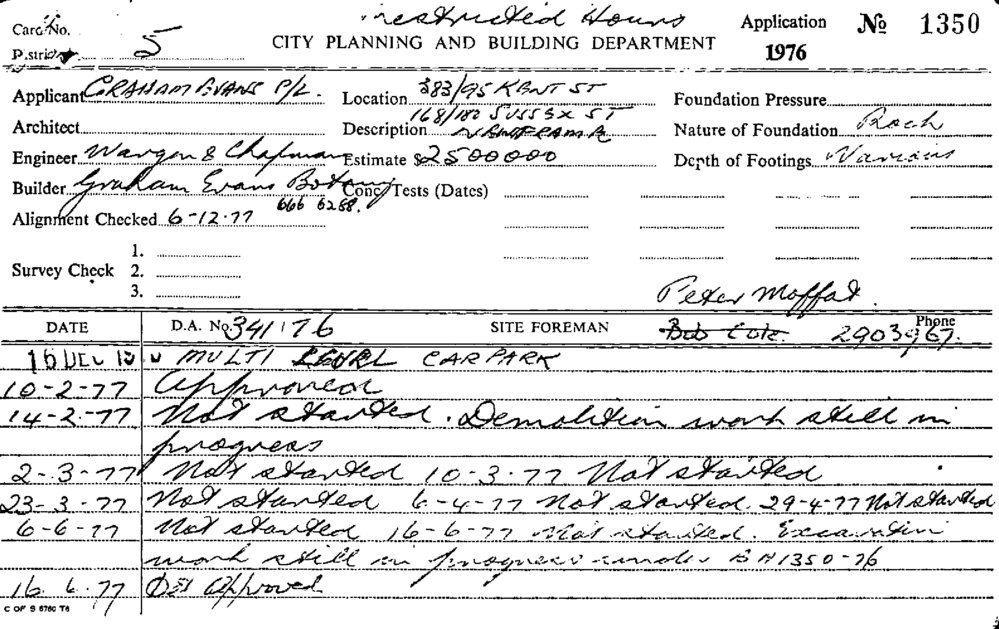 Card No. restricted Hours Application No 1350
District 5 CITY PLANNING AND BUILDING DEPARTMENT 1976
Applicant GRAHAM EVANS P/L. Location 383/95 KENT ST Foundation Pressure
168/182 SUSSEX ST
Architect Description Nature of Foundation Rock
Engineer Wargon & Chapman Estimate $2500000 Depth of Footings Various
Builder Graham Evans Botany Conc. Tests (Dates)
666 6288.
Alignment Checked 6-12-77
1.
Survey Check 2.
3.
Peter Moffat.
DATE D.A. No 341176 SITE FOREMAN Bob Cole. Phone 290
16 DEC N MULTI LEVEL CARPARK
10-2-77 Approved
14-2-77 Not started. Demolition work still in
progress
2-3-77 Not started 10-3-77 Not started
23-3-77 Not started 6-4-77 Not started. 29-4-77 Not started
6-6-77 Not started 16-6-77 Not started. Excavation
work still in progress under BA1350-76
16.6.77 Approved
C OF S 6760 T6